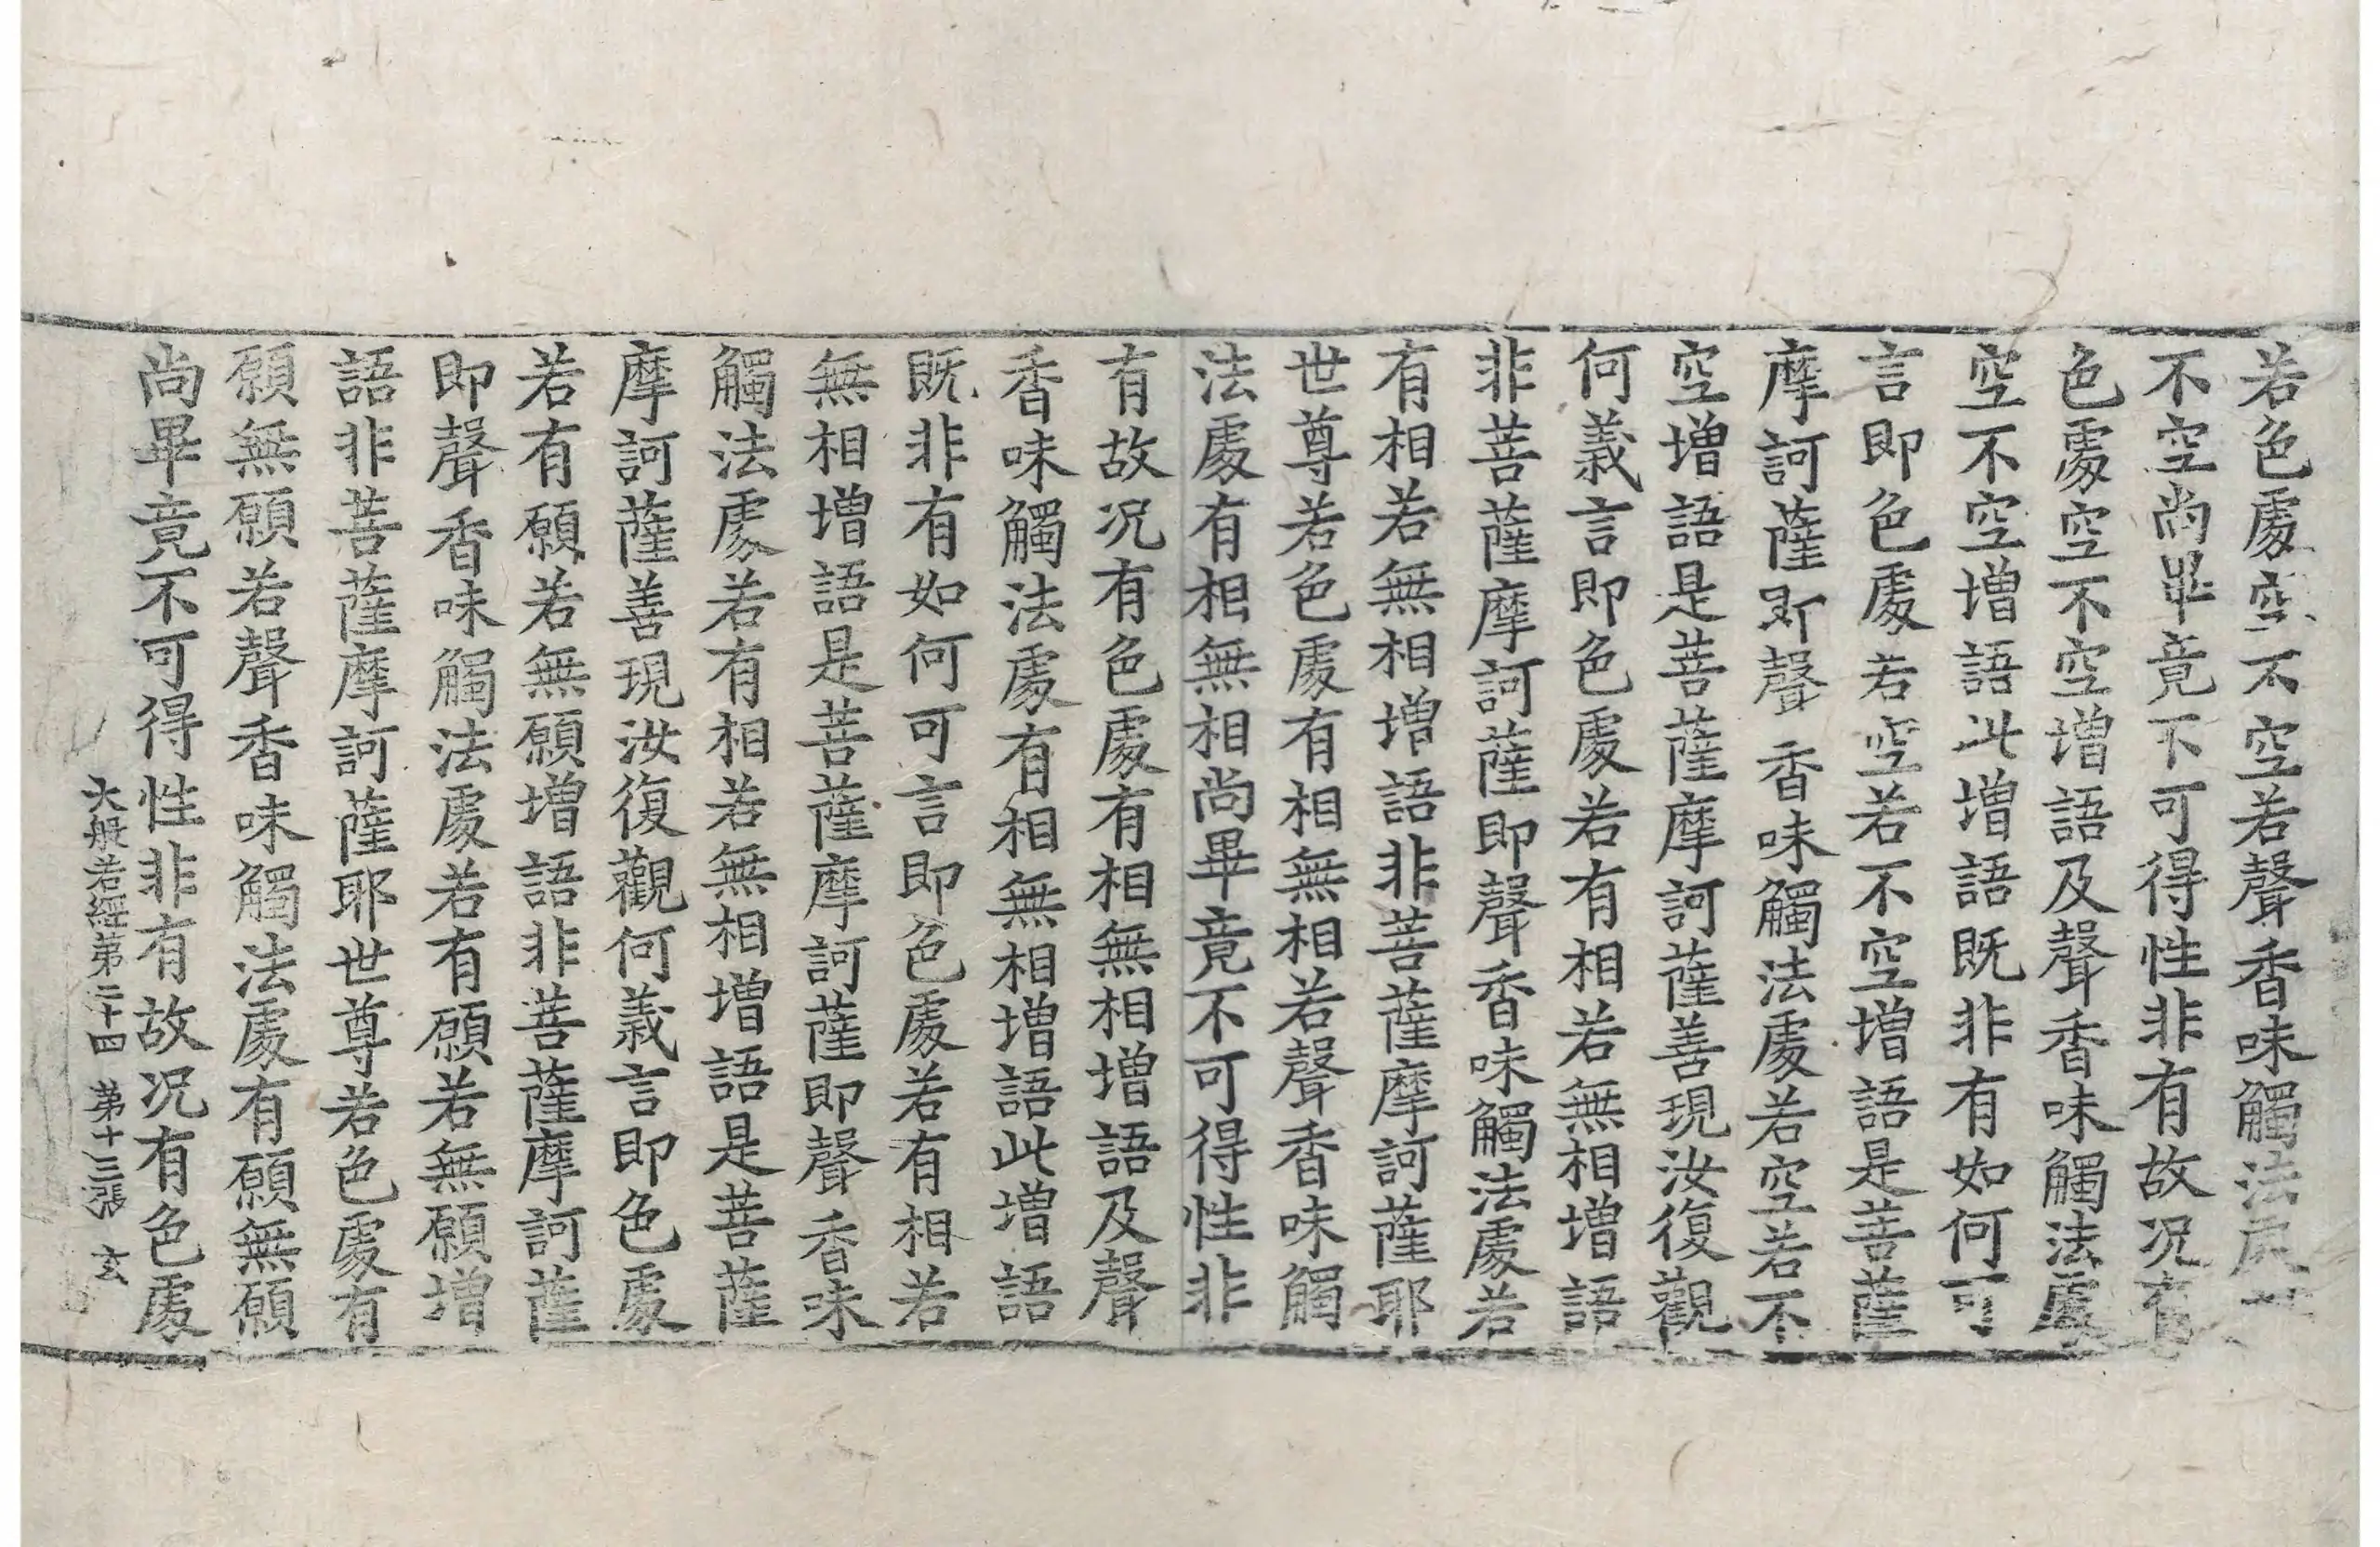 若色處空不空若聲香味觸法處
不空尚畢竟不可得性非有故况有
色處空不空增語及聲香味觸法處
空不空增語此增語既非有如何可
言即色處若空若不空增語是菩薩
摩訶薩即聲香味觸法處若空若不
空增語是菩薩摩訶薩善現汝復觀
何義言即色處若有相若無相增語
非菩薩摩訶薩即聲香味觸法處若
有相若無相增語非菩薩摩訶薩耶
世尊若色處有相無相若聲香味觸
法處有相無相尚畢竟不可得性非
有故况有色處有相無相增語及聲
香味觸法處有相無相增語此增語
既非有如何可言即色處若有相若
無相增語是菩薩摩訶薩即聲香味
觸法處若有相若無相增語是菩薩
摩訶薩善現汝復觀何義言即色處
若有願若無願增語非菩薩摩訶薩
即聲香味觸法處若有願若無願增
語非菩薩摩訶薩耶世尊若色處有
願無願若聲香味觸法處有願無願
尚畢竟不可得性非有故况有色處
大般若經第二十四 第十三張 玄